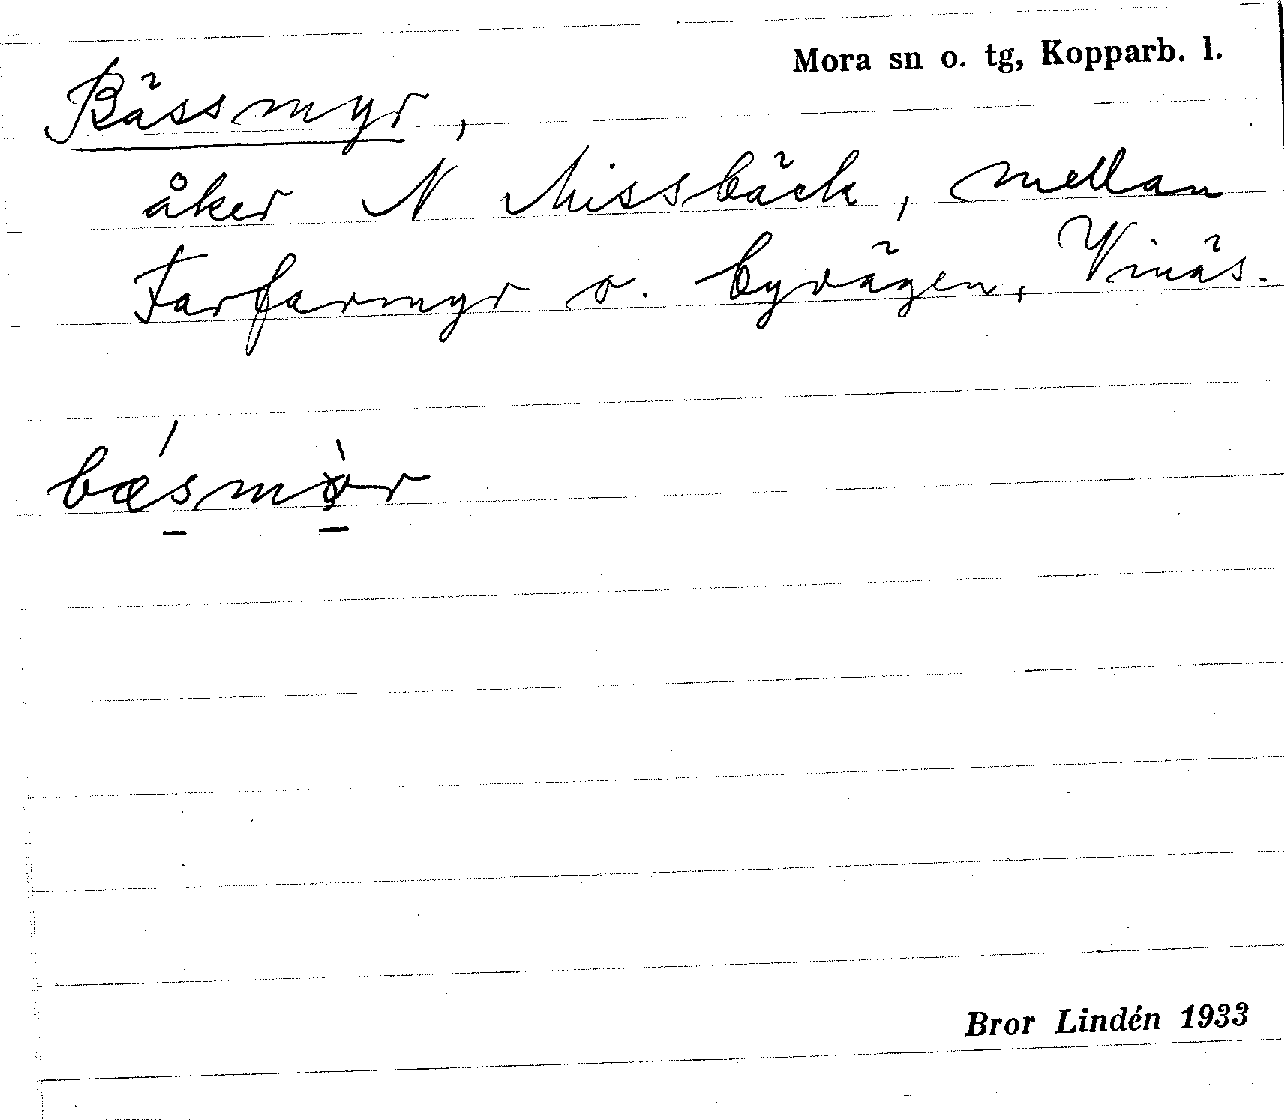 Mora sn o. tg, Kopparb. l.
Bässmyr,
åker N Missbäck, mellan
Farfarmyr o. byvägen, Vinäs.
bæsmør
Bror Lindén 1933